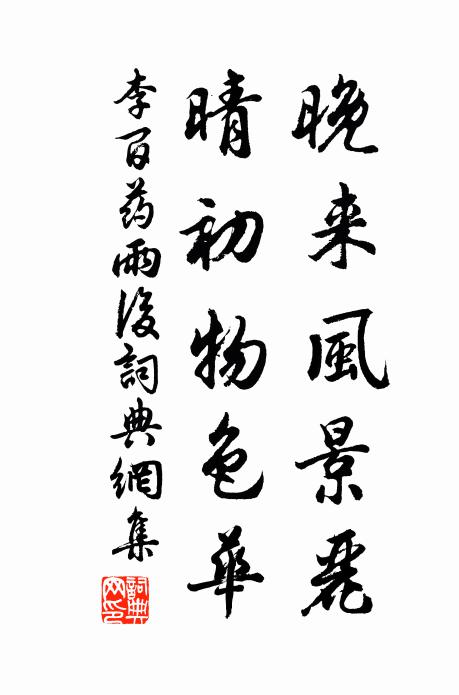 晚来風景麗
晴初物色華
李百药雨後詞典網集
詞典網印